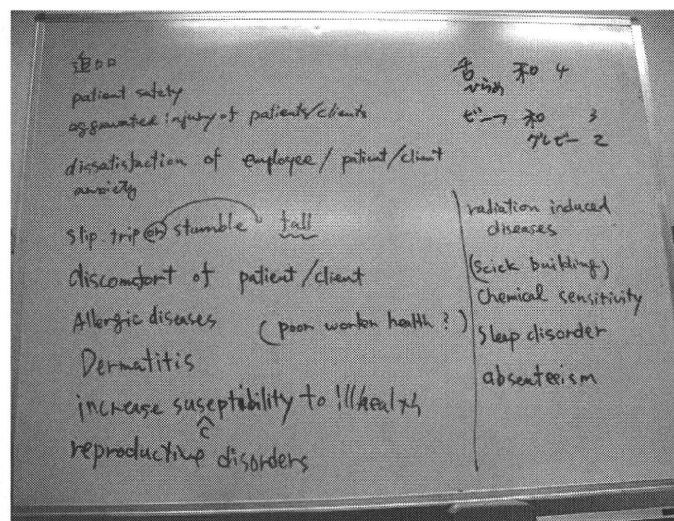 追加
patient safety
aggravated injury of patients/clients
dissatisfaction of employee/patient/client
anxiety
slip trip or stumble fall
discomfort of patient/client
Allergic diseases (poor worker health?)
Dermatitis
increase suseptibility to illhealth
c
reproductive disorders
舌 和 4
ビーフ 和 3
グレービー 2
radiation induced
diseases
(scick building)
Chemical sensitivity
Sleep disorder
absenteeism